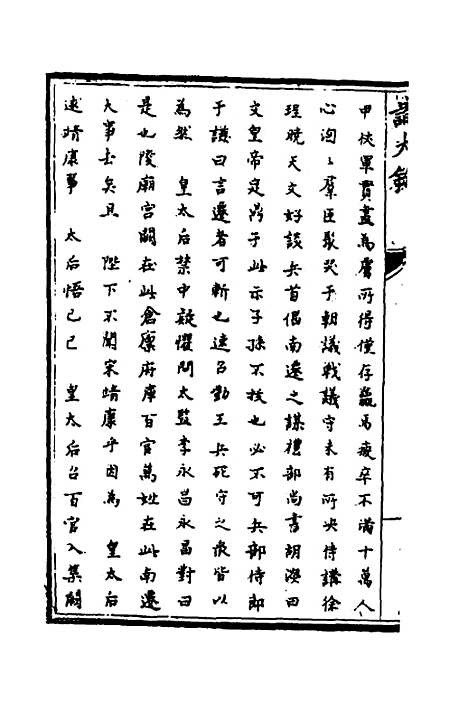 甲俠軍貲盡為虜所得僅存羸馬疲卒不滿十萬人
心洶〻羣臣聚哭于朝議戰議守未有所决侍講徐
珵曉天文好談兵首倡南遷之謀禮部尚書胡濙曰
文皇帝定鼎于此示子孫不拔也必不可兵部侍郎
于謙曰言遷者可斬也速召勤王兵死守之衆皆以
為然　皇太后禁中疑懼問太監李永昌永昌對曰
是也陵廟宮闕在此倉廪府庫百官萬姓在此南遷
大事去矣且　陛下不聞宋靖康乎因為　皇太后
述靖康事　太后悟己巳　皇太后召百官入集闕